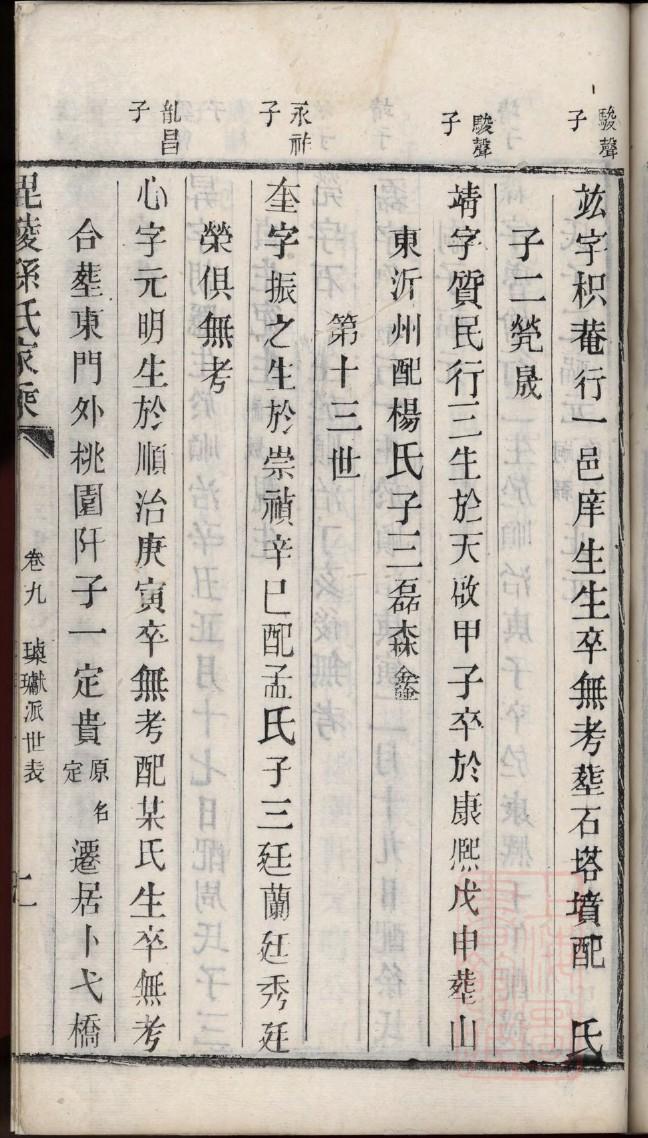 駿聲
子
竑字枳菴行一邑庠生生卒無考塟石塔墳配　氏
子二㷀晟
駿聲
子
靖字質民行三生於天啟甲子卒於康熈戊申塟山
東沂州配楊氏子三磊森鑫
第十三世
永祚
子
奎字振之生於崇禎辛巳配孟氏子三廷蘭廷秀廷
榮俱無考
胤昌
子
心字元明生於順治庚寅卒無考配某氏生卒無考
合塟東門外桃園阡子一定貴原名
定遷居卜弋橋
毘陵孫氏家乘
卷九
派世表